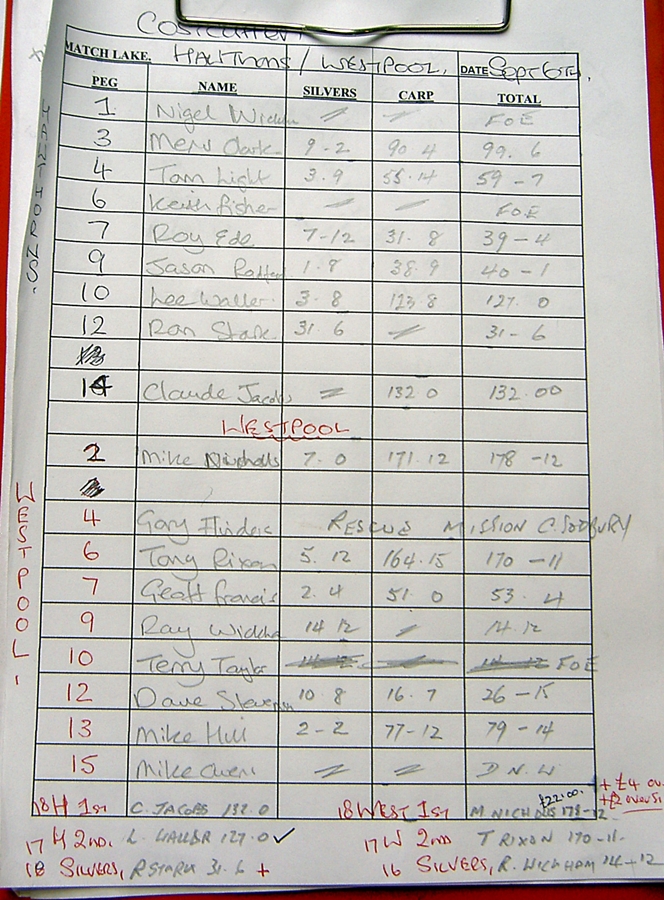 Costcutter
MATCH LAKE. HAWTHORNS / WESTPOOL. DATE Sept 6th.
PEG NAME SILVERS CARP TOTAL
1 Nigel FOE
3 Merv Clark 9-2 90 4 99. 6
4 Tom Light 3.9 55.14 59-7
6 Keith fisher FOE
7 Roy Ede 7-12 31.8 39-4
9 Jason 1.8 38.9 40-1
10 Lee Waller. 3.8 123.8 127.0
12 Ron Stark 31.6 31-6
14 Claude Jacobs 132 0 132.00
WESTPOOL
2 Mike Nicholls 7.0 171.12 178-12
4 Gary Flinders RESCUE MISSION C. SODBURY
6 Tony Rixon 5.12 164.15 170-11
7 Geoff francis 2.4 51 0 53.4
9 Ray 14 12 14.12
10 Terry Taylor FOE
12 Dave 10.8 16.7 26-15
13 Mike Hill 2-2 77-12 79-14
15 Mike Owens D N. W
HAWTHORNS.
WESTPOOL.
18 H 1st C. JACOBS 132.0 18 WEST 1st M NICHOLLS 178-12
£22.00. + £4
17 H 2nd. L. WALLER 127.0 ✓ 17 W 2nd T RIXON 170-11.
18 SILVERS, R STARK 31.6 + 16 SILVERS, R. WICKHAM 14+12